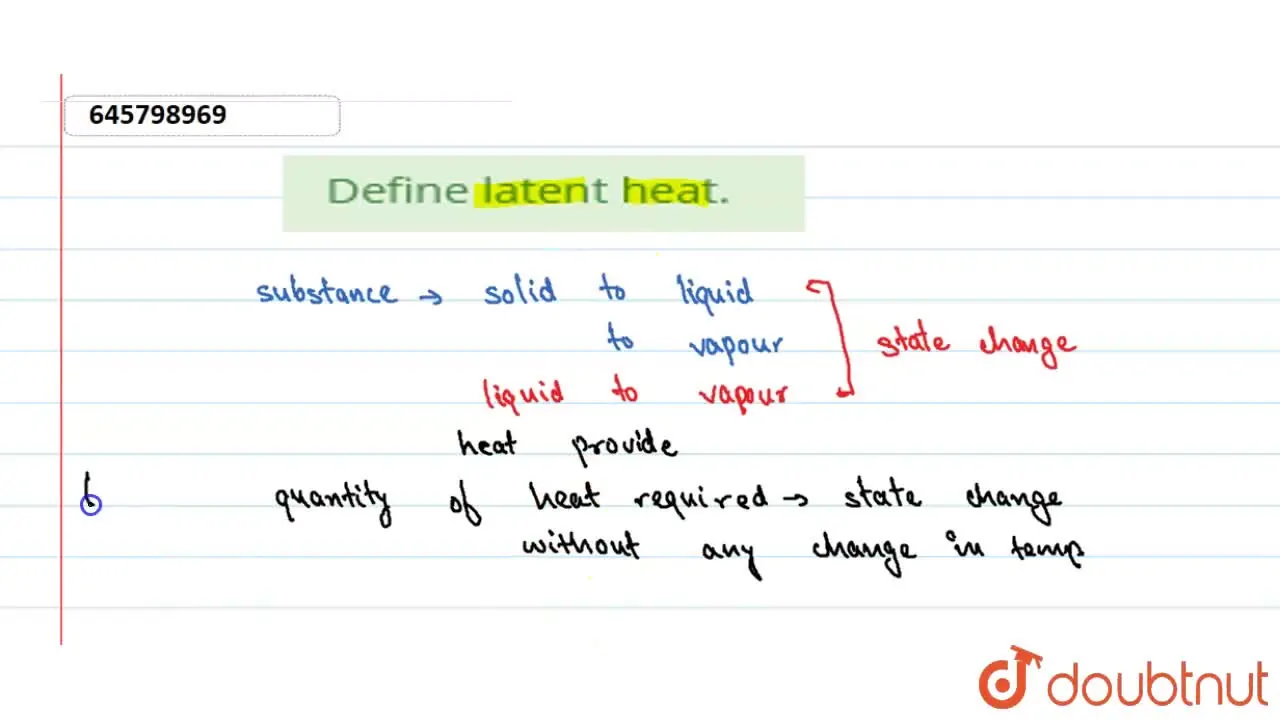 645798969
Define latent heat.
substance → solid to liquid
to vapour
state change
liquid to vapour
heat provide
quantity of heat required → state change
without any change in temp
doubtnut